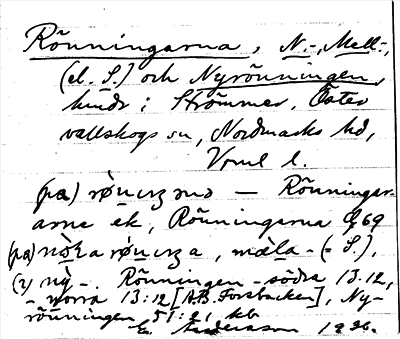 Rönningarna, N.-, Mell.-,
(el. S.) och Nyrönningen,
hmdr i Strömmer, Öster
vallskogs sn, Nordmarks hd,
Vrml l.
(pa) — Rönningar-
arne ek, Rönningarna Q 69
(pa) mäla- (- S.),
(2) ny -. Rönningen - södra 13:12,
- norra 13:12 [A.B. Forsbacken], Ny-
rönningen 51:21 kb
E. Andersson 1926.